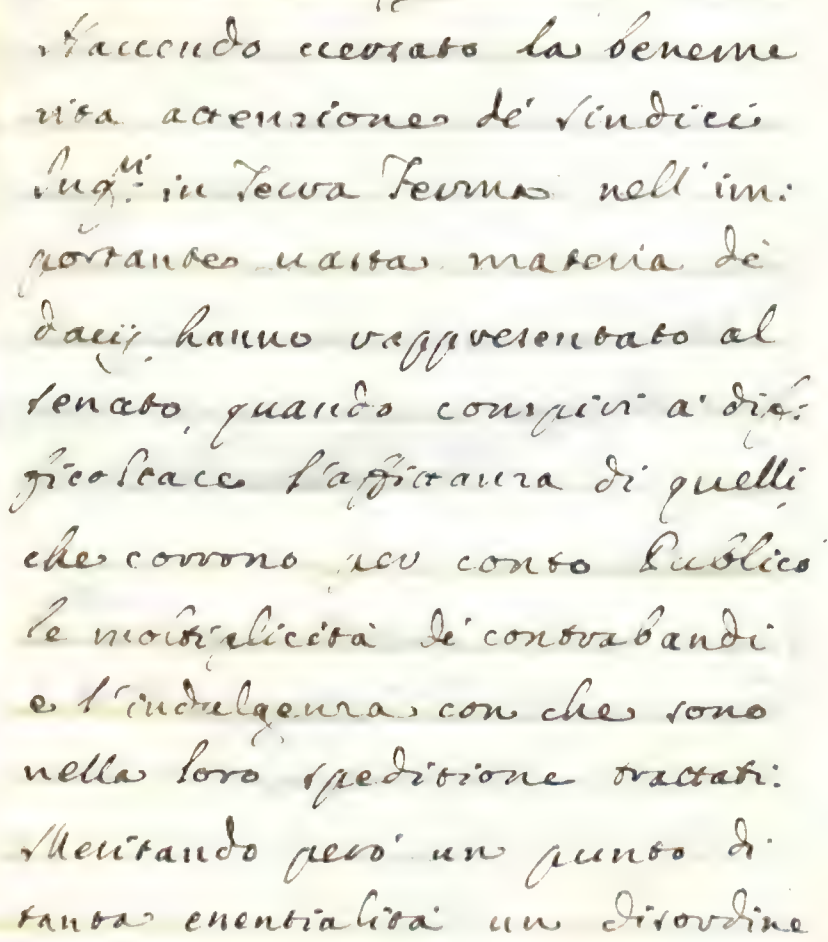 Hauendo uersato la beneme
rita attenzione de' Sindici
Inq:ri in Terra Ferma nell' im:
portante uasta materia de'
dacij, hanno rappresentato al
Senato, quando conspiri a' dif:
ficoltare l'affittanza di quelli
che corrono per conto Publico
le moltiplicità de' contrabandi
e l'indulgenza con che sono
nella loro speditione trattati:
Meritando però un punto di
tanta essentialità un disordine